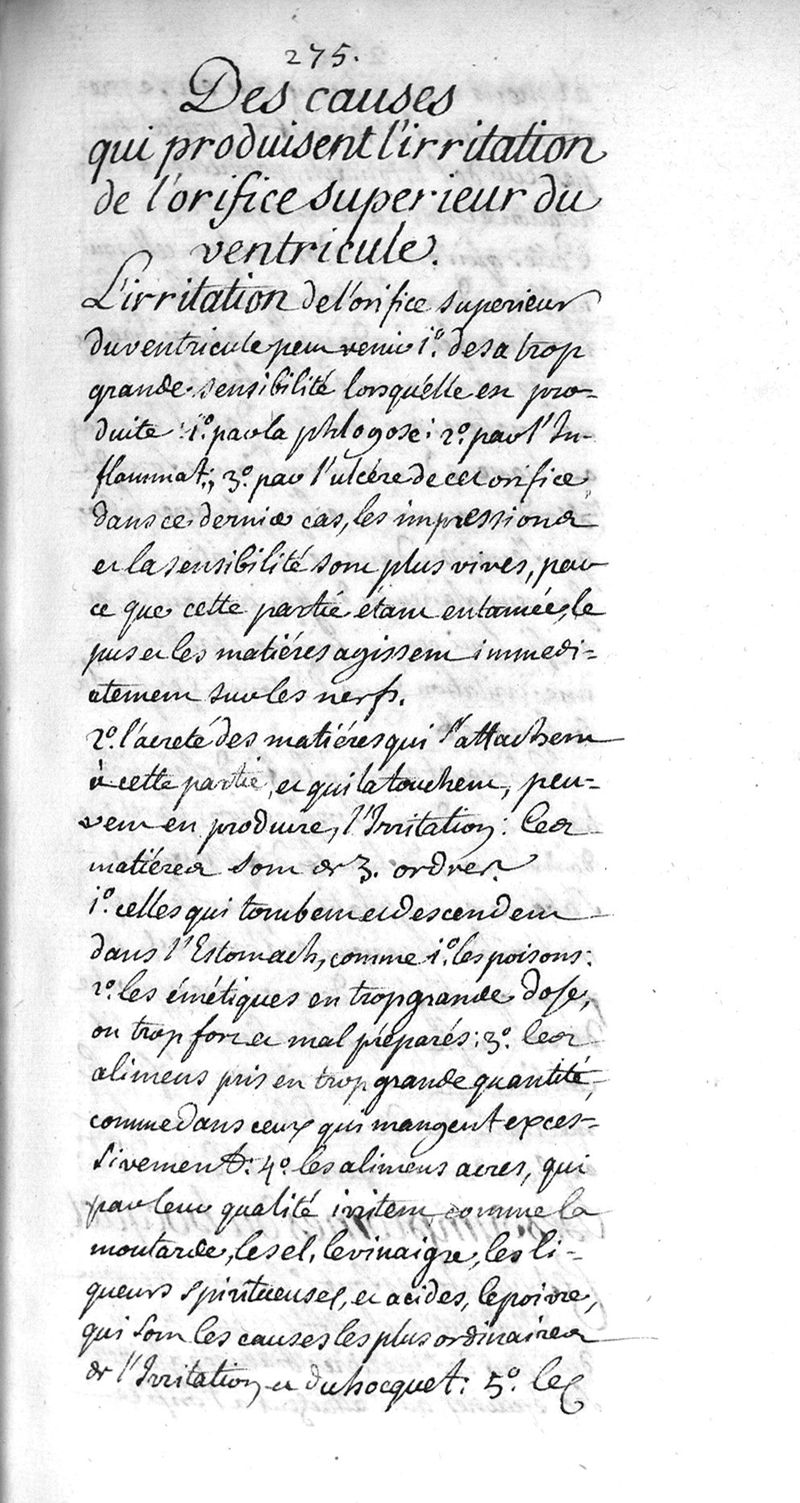 275.
Des causes
qui produisent l'irritation
de l'orifice superieur du
ventricule.
L'irritation de l'orifice superieur
du ventricule peut venir 1.º de sa trop
grande sensibilité lorsqu'elle est pro-
duite : 1.º par la phlogose : 2.º par l'In-
flammat.; 3.º par l'ulcére de cet orifice
dans ce dernier cas, les impressions
et la sensibilité sont plus vives, par
ce que cette partie étant entamée, le
pus et les matiéres agissent immedi-
atement sur les nerfs.
2.º l'acreté des matiéres qui s'attachent
à cette partie, et qui la touchent, peu-
vent en produire, l'Irritation : les
matiéres sont de 3. ordres.
1.º celles qui tombent et descendent
dans l'Estomach, comme 1.º les poisons :
2.º les émétiques en trop grande dose,
ou trop fort et mal préparés : 3.º les
alimens pris en trop grande quantité,
comme dans ceux qui mangent exces-
sivement : 4.º les alimens acres, qui
par leur qualité irritent comme la
moutarde, le sel, le vinaigre, les li-
queurs spiritueuses, et acides, le poivre,
qui sont les causes les plus ordinaires
de l'Irritation et du hocquet : 5.º les